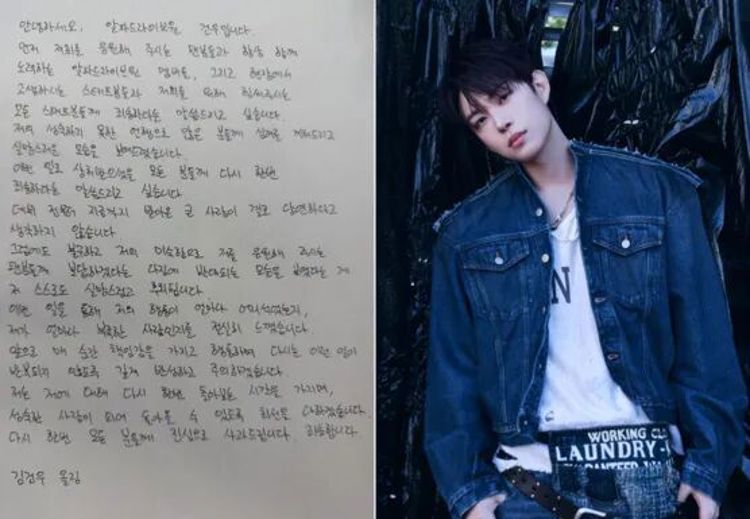 안녕하세요, 알파드라이브원 건우입니다.
먼저 저희를 응원해 주시는 팬분들과 항상 함께
노력하는 알파드라이브원 멤버들, 그리고 현장에서
고생하시는 스태프분들과 저희를 위해 힘써주시는
모든 스태프분들께 죄송하다는 말씀드리고 싶습니다.
저의 성숙하지 못한 언행으로 많은 분들께 심려를 끼쳐드리고
실망스러운 모습을 보여드렸습니다.
이번 일로 상처받으셨을 모든 분들께 다시 한번
죄송하다는 말씀드리고 싶습니다.
데뷔 전부터 지금까지 받아온 큰 사랑이 결코 당연하다고
생각하지 않습니다
그럼에도 불구하고 저의 미숙함으로 저를 응원해 주시는
팬분들께 보답하겠다는 다짐에 반대되는 모습을 보였다는 게
저 스스로도 실망스럽고 후회됩니다
이번 일을 통해 저의 행동이 얼마나 어리석었는지,
제가 얼마나 부족한 사람인지를 절실히 느꼈습니다.
앞으로 매 순간 책임감을 가지고 행동하며 다시는 이런 일이
반복되지 않도록 깊게 반성하고 주의하겠습니다.
저는 저에 대해 다시 한번 돌아보는 시간을 가지며,
성숙한 사람이 되어 돌아올 수 있도록 최선을 다하겠습니다.
다시 한번 모든 분들께 진심으로 사과드립니다. 죄송합니다.
김건우 올림
N
WORKING CL
LAUNDRY-